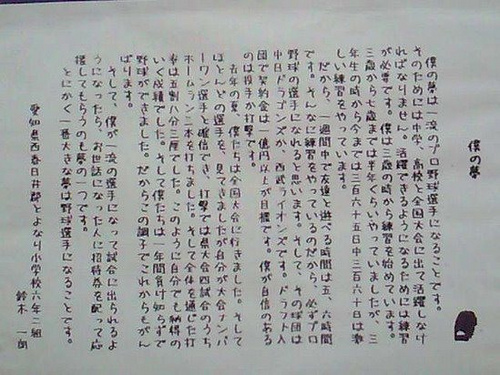 僕の夢
僕の夢は一流のプロ野球選手になることです。
そのためには中学、高校と全国大会に出て活躍しなけ
ればなりません。活躍できるようになるためには練習
が必要です。僕は三歳の時から練習を始めています。
三歳から七歳までは半年ぐらいやっていましたが、三
年生の時から今までは三百六十五日中三百六十日は激
しい練習をやっています。
だから、一週間中で友達と遊べる時間は五、六時間
です。そんなに練習をやっているのだから、必ずプロ
野球の選手になれると思います。そして、その球団は
中日ドラゴンズか、西武ライオンズです。ドラフト入
団で契約金は一億円以上が目標です。僕が自信のある
のは投手か打撃です。
去年の夏、僕たちは全国大会に行きました。そして
ほとんどの選手を、見てきましたが自分が大会ナンバ
ーワン選手と確信でき、打撃では県大会四試合のうち
ホームラン三本を打ちました。そして全体を通じた打
率は五割八分三厘でした。このように自分でも納得の
いく成績でした。そして僕たちは一年間負け知らずで
野球ができました。だからこの調子でこれからもがん
ばります。
そして、僕が一流の選手になって試合に出られるよ
うになったら、お世話になった人に招待券を配って応
援してもらうのも夢の一つです。
とにかく一番大きな夢は野球選手になることです。
愛知県西春日井郡とよなり小学校六年二組
鈴木 一朗